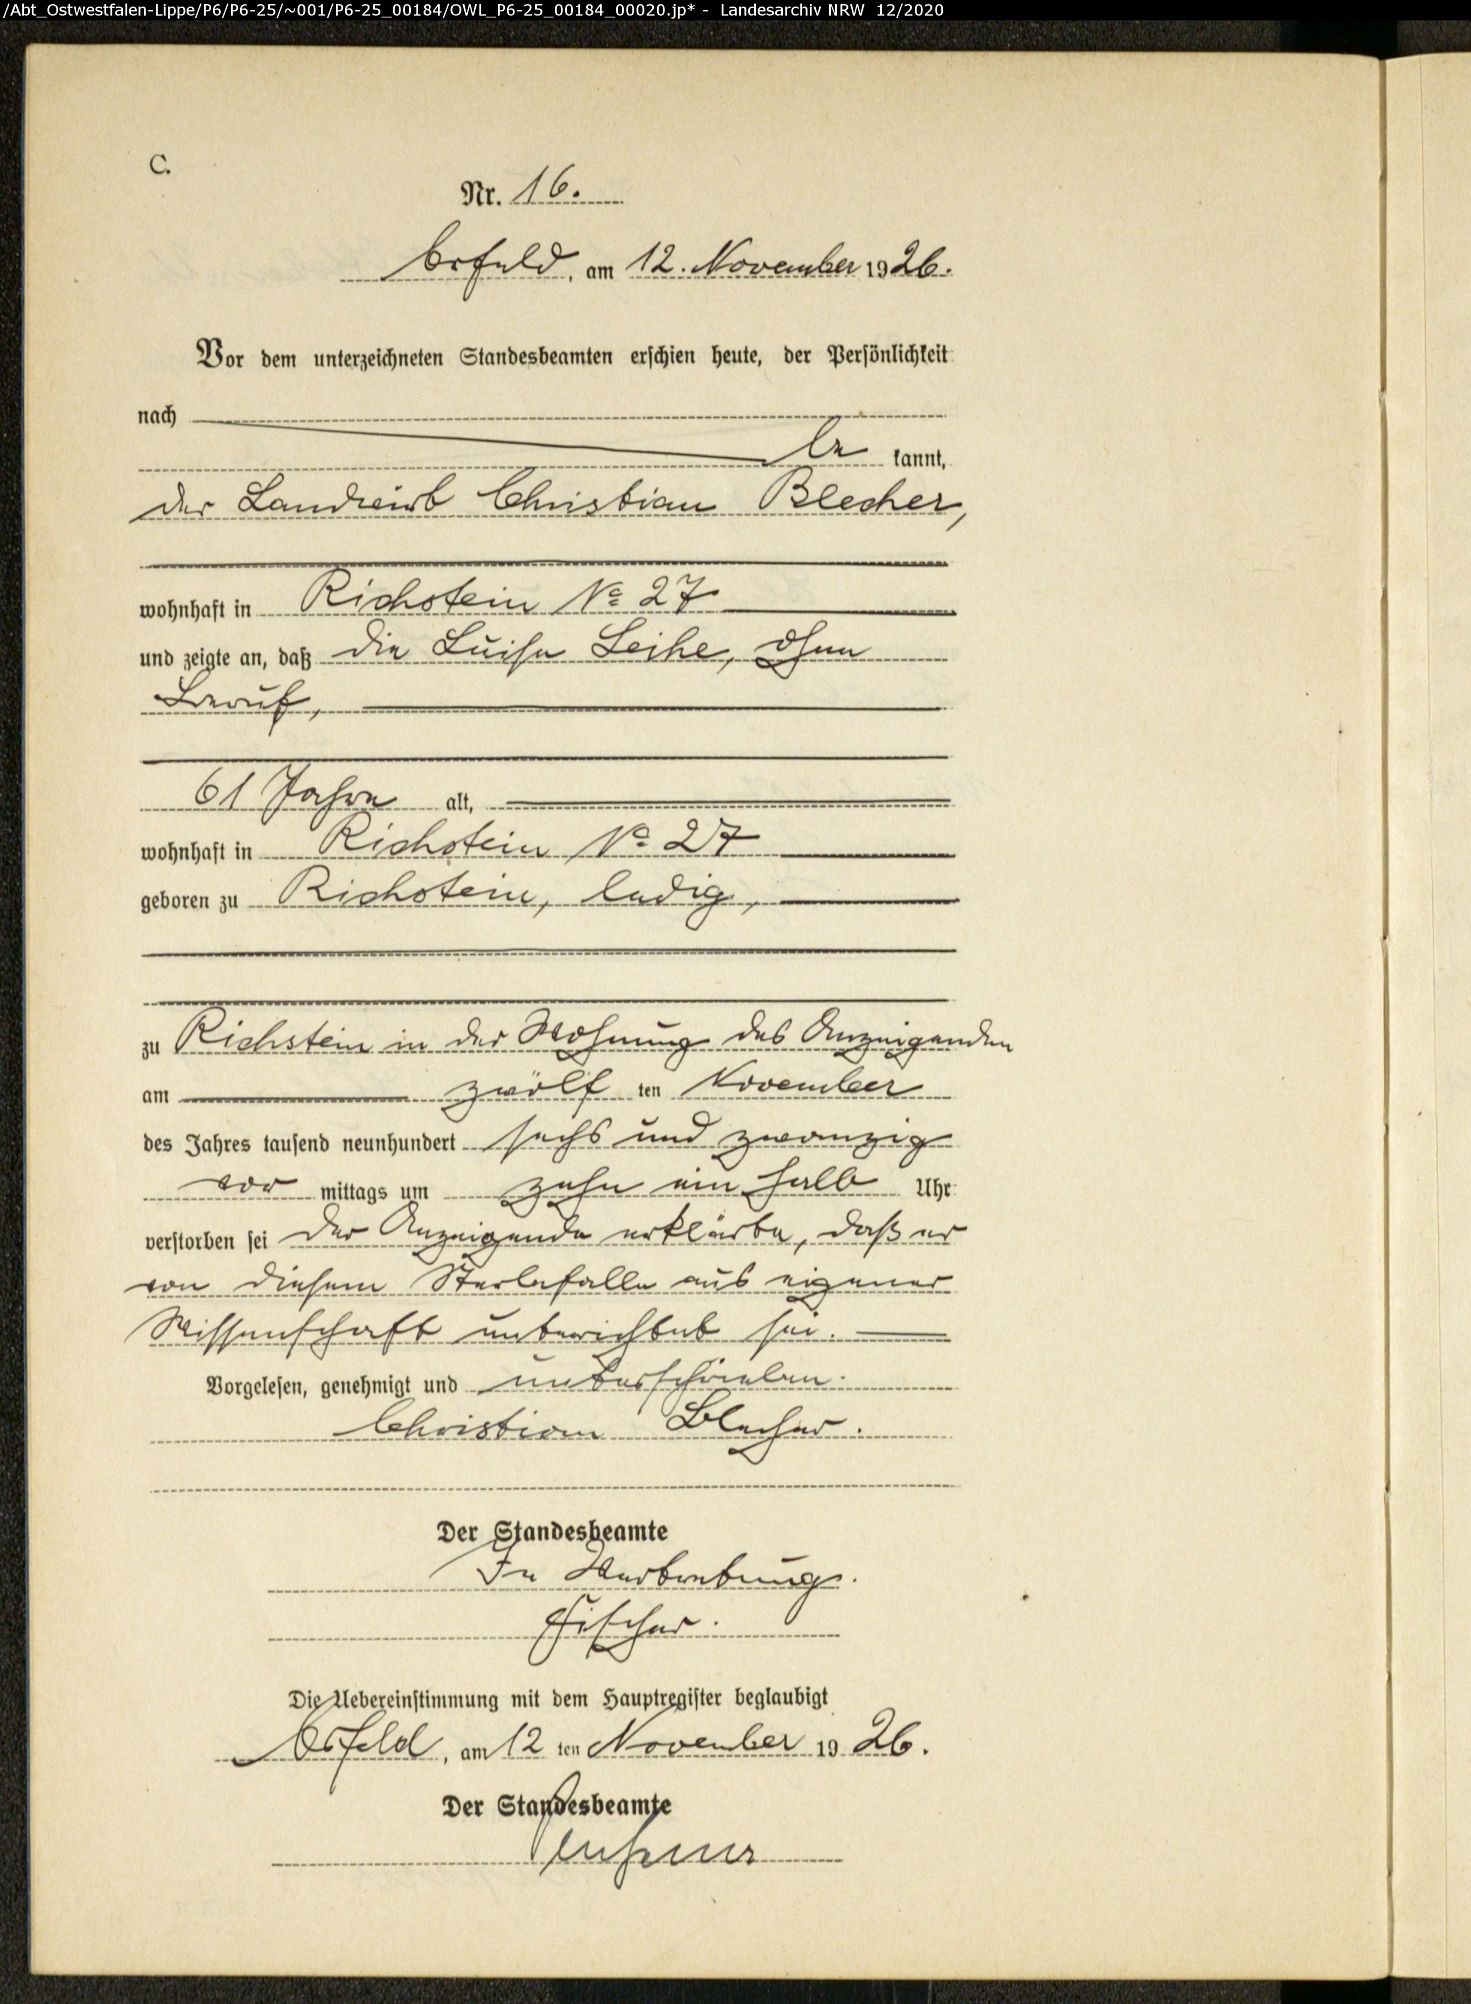 /Abt_Ostwestfalen-Lippe/P6/P6-25/~001/P6-25_00184/OWL_P6-25_00184_00020.jp* - Landesarchiv NRW 12/2020
C.
Nr. 16.
Arfeld, am 12. November 1926.
Vor dem unterzeichneten Standesbeamten erschien heute, der Persönlichkeit
nach
be kannt,
der Landwirt Christian Blecher,
wohnhaft in Richstein No 27
und zeigte an, daß die Luise Leihe, ohne
Beruf,
61 Jahre alt,
wohnhaft in Richstein No 27
geboren zu Richstein, ledig,
zu Richstein in der Wohnung des Anzeigenden
am zwölf ten November
des Jahres tausend neunhundert sechs und zwanzig
vor mittags um zehn ein halb Uhr
verstorben sei der Anzeigende erklärte, daß er
von diesem Sterbefalle aus eigener
Wissenschaft unterrichtet sei.
Vorgelesen, genehmigt und unterschrieben.
Christian Blecher.
Der Standesbeamte
In Vertretung.
Fischer.
Die Uebereinstimmung mit dem Hauptregister beglaubigt
Arfeld, am 12 ten November 19 26.
Der Standesbeamte